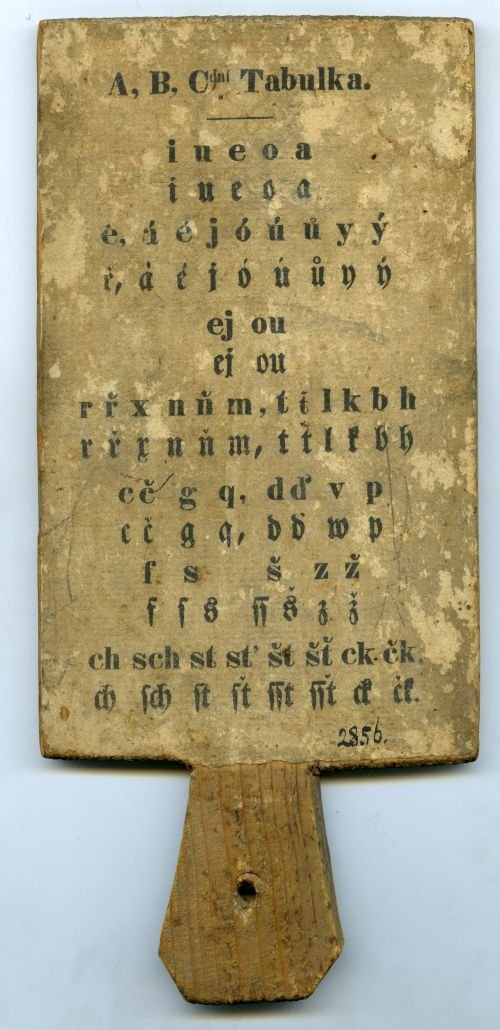 A, B, Cdní Tabulka.
i u e o a
i u e o a
ě, á é j ó ú ů y ý
ě, á é j ó ú ů y ý
ej ou
ej ou
r ř x n ň m, t ť l k b h
r ř x n ň m, t ť l k b h
c č g q, d ď v p
c č g q, d ď w p
f s š z ž
f ſ s ſſ š z ž
ch sch st sť št šť ck čk.
ch ſch ſt ſť ſſt ſſť ck čk.
2856.